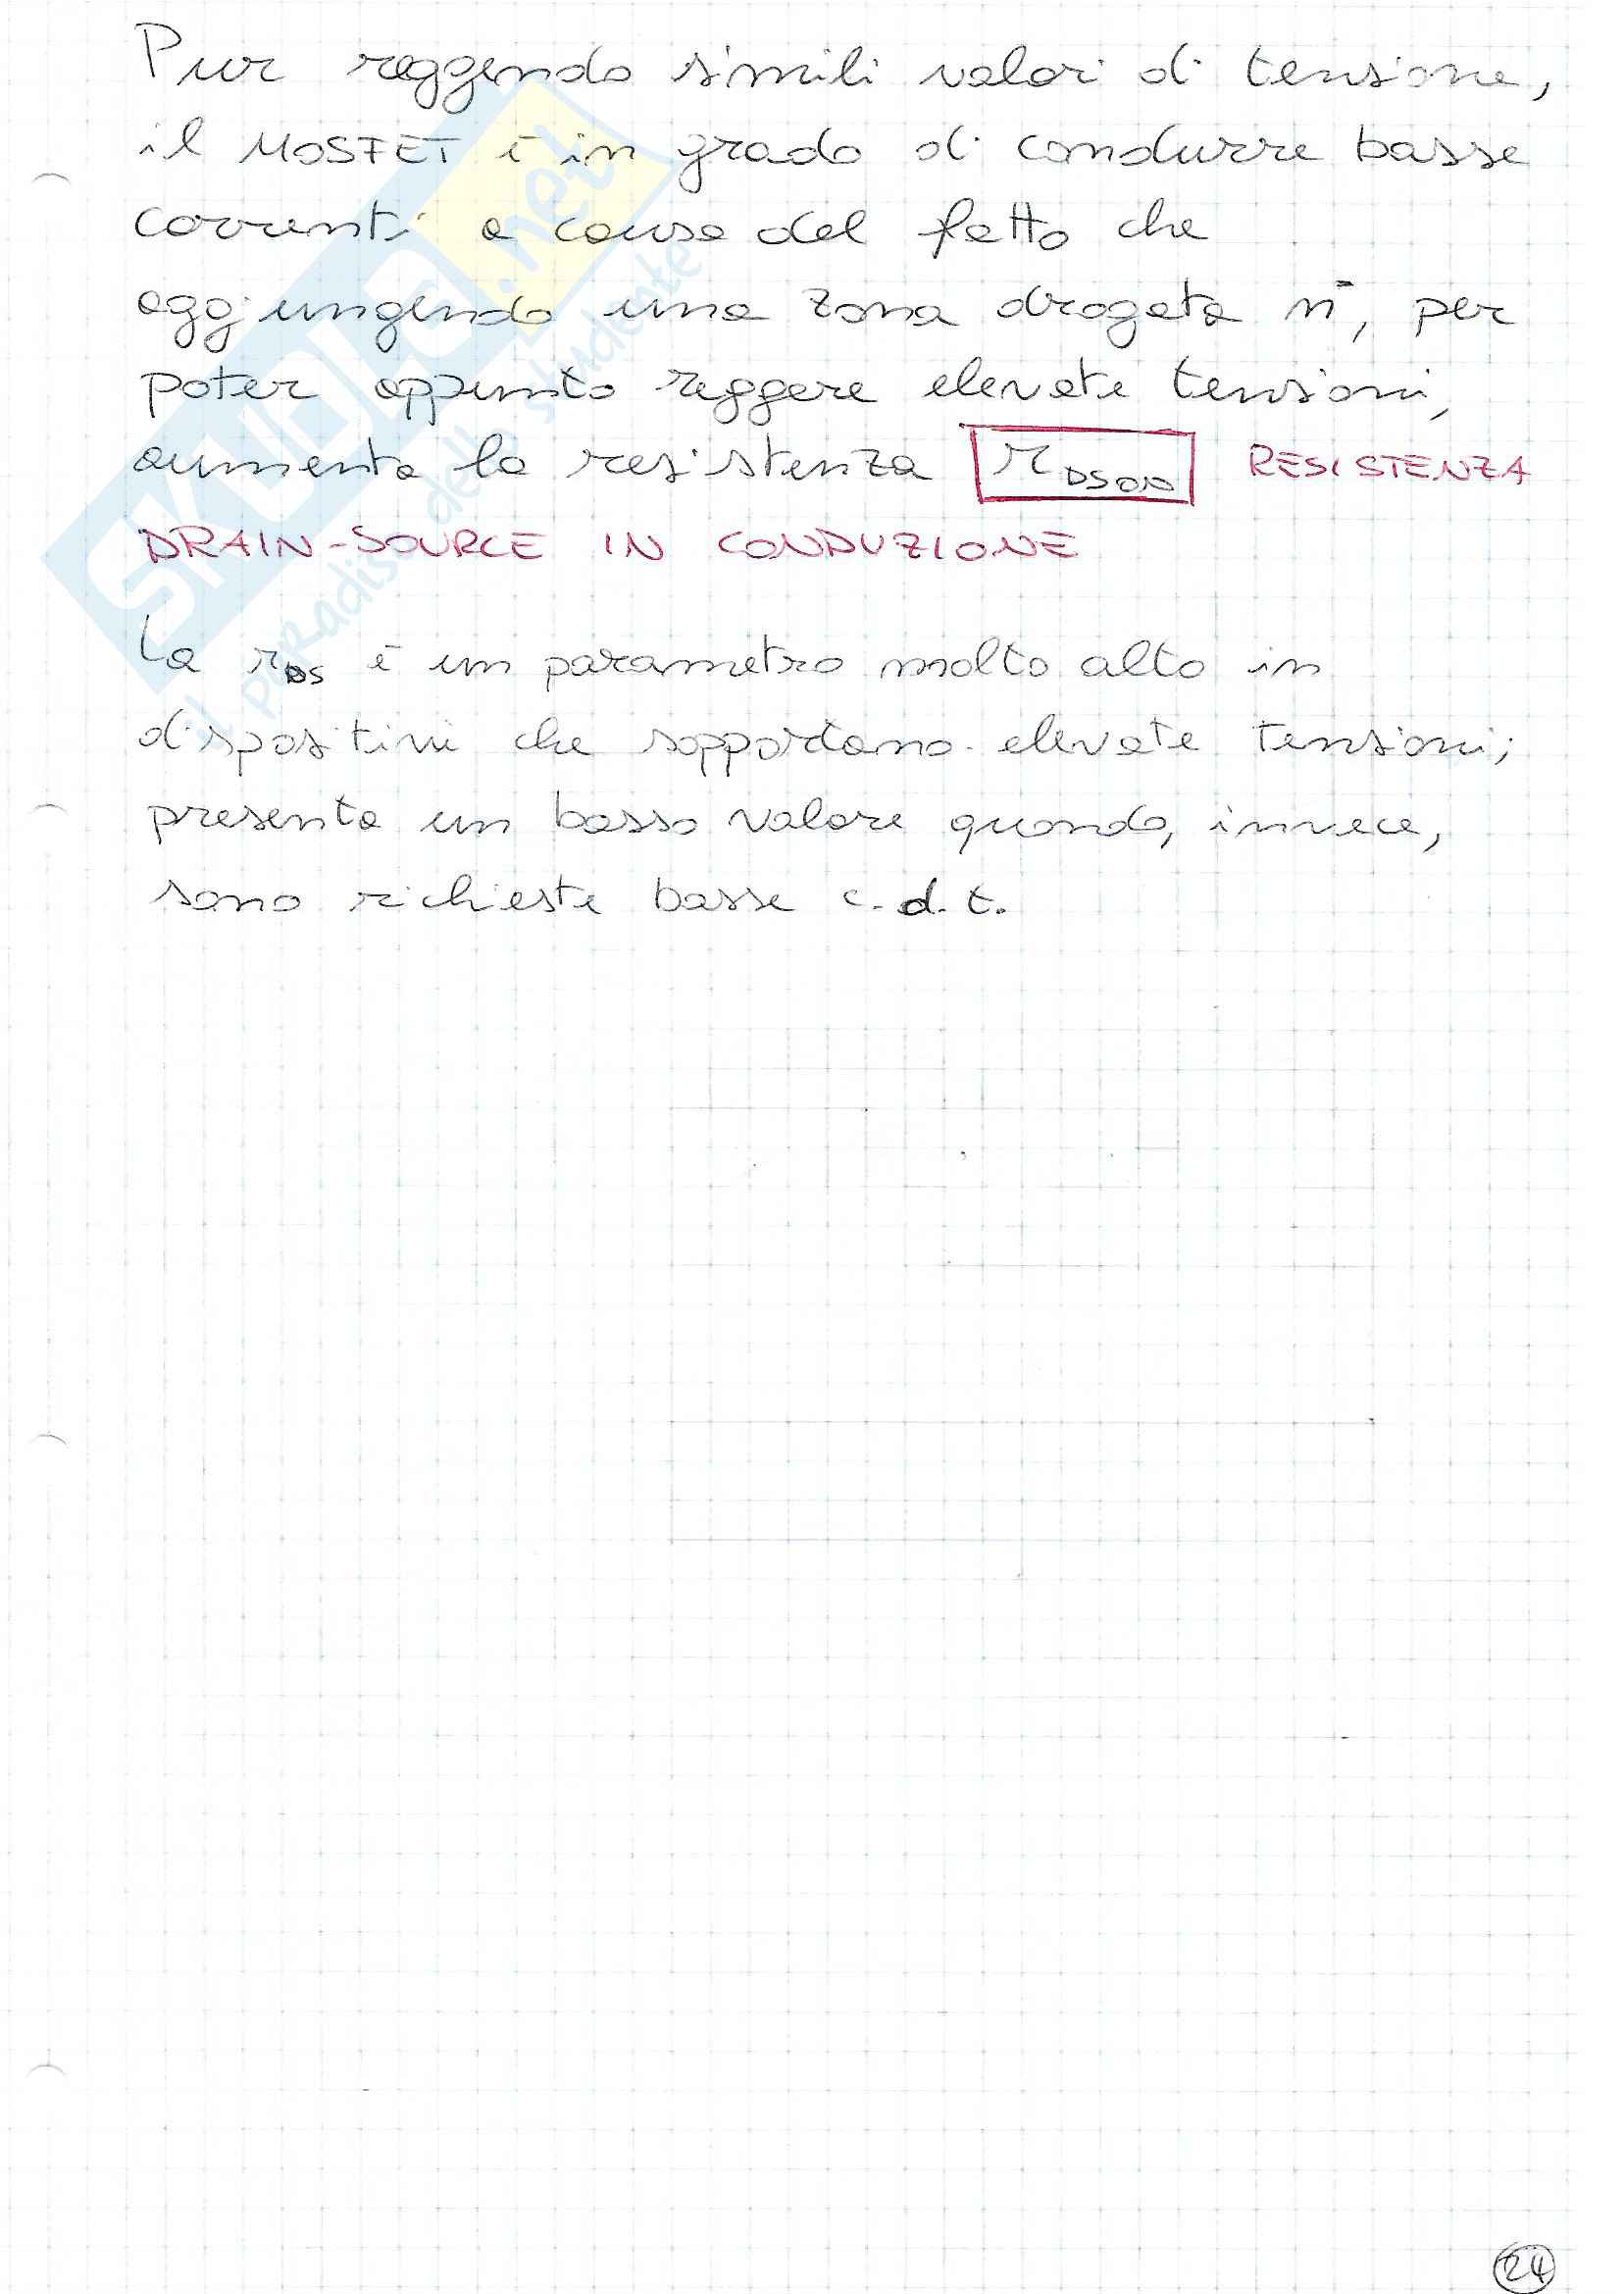 Pur reggendo simili valori di tensione,
il MOSFET è in grado di condurre basse
correnti a causa del fatto che
aggiungendo una zona drogata n⁻, per
poter appunto reggere elevate tensioni,
aumenta la resistenza r_DSON RESISTENZA
DRAIN-SOURCE IN CONDUZIONE
La r_DS è un parametro molto alto in
dispositivi che sopportano elevate tensioni;
presenta un basso valore quando, invece,
sono richieste basse c.d.t.
24
SKUOLA.net
il paradiso dello studente